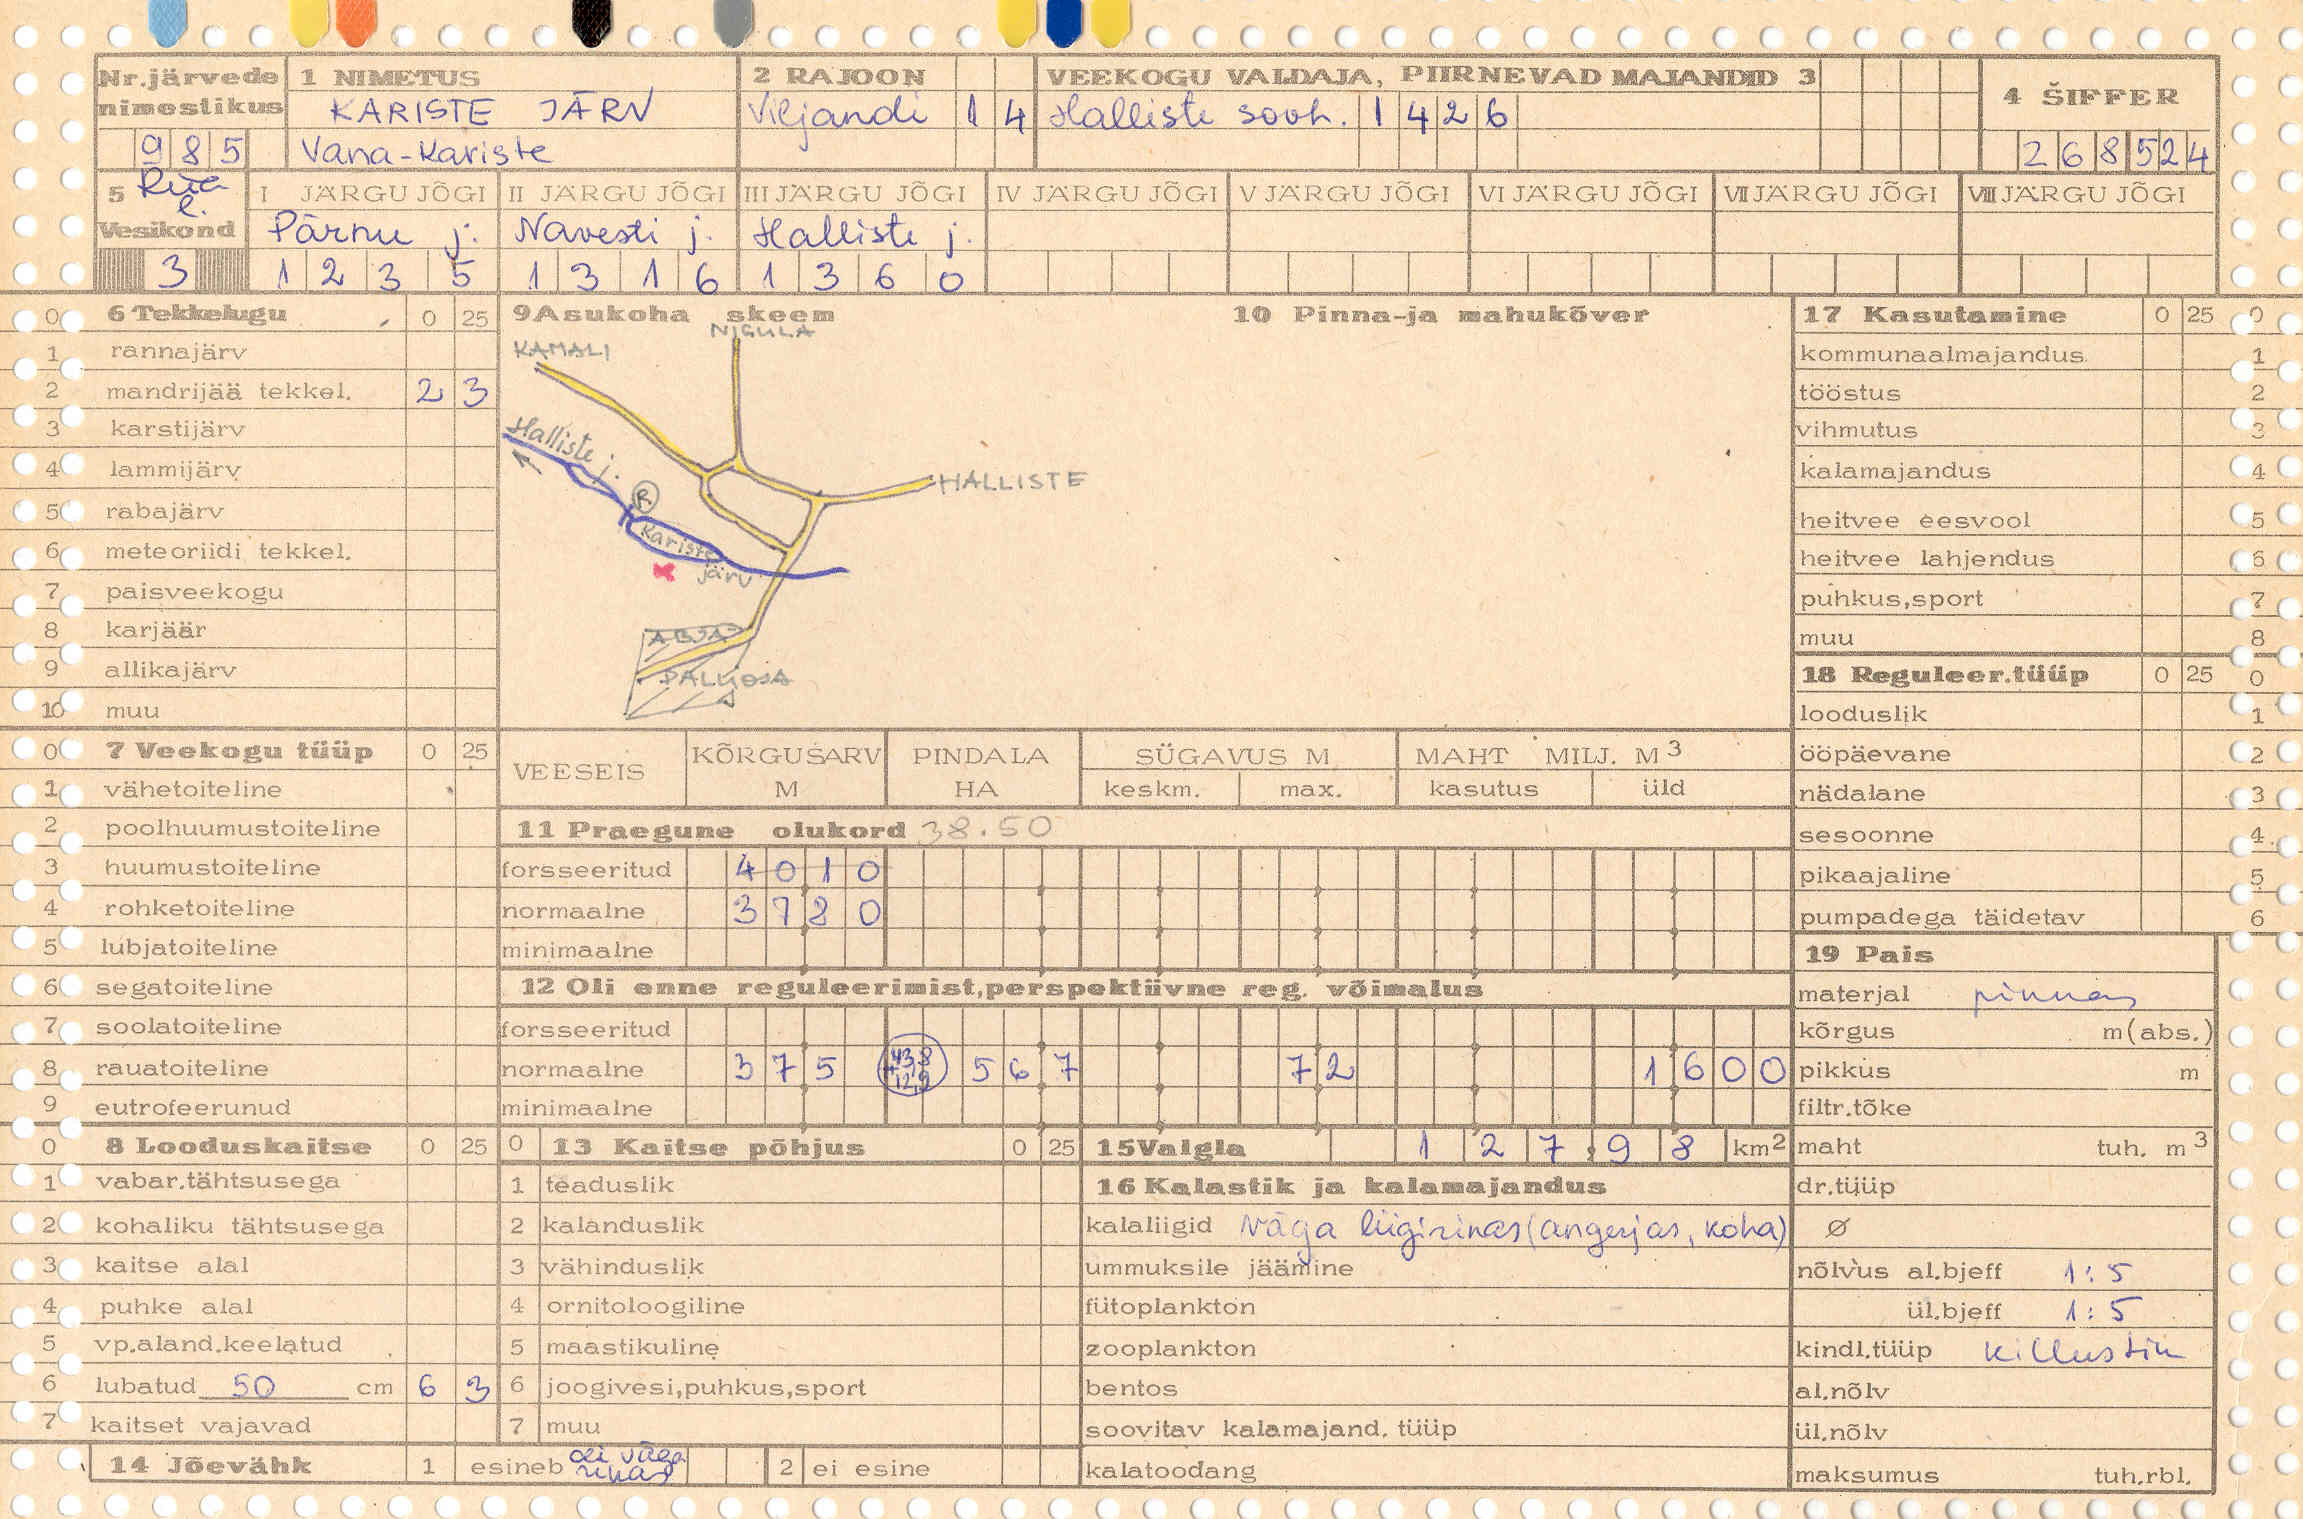 Nr.järvede nimestikus
985
1 NIMETUS
KARISTE JÄRV
Vana-Kariste
2 RAJOON
Viljandi 14
VEEKOGU VALDAJA, PIIRNEVAD MAJANDID 3
Halliste sovh. 1426
4 ŠIFFER
268524
5 Vesikond
Riia l.
3
I JÄRGU JÕGI
Pärnu j.
1235
II JÄRGU JÕGI
Navesti j.
1316
III JÄRGU JÕGI
Halliste j.
1360
IV JÄRGU JÕGI
V JÄRGU JÕGI
VI JÄRGU JÕGI
VII JÄRGU JÕGI
VIII JÄRGU JÕGI
0 6 Tekkelugu 0 25
1 rannajärv
2 mandrijää tekkel. 2 3
3 karstijärv
4 lammijärv
5 rabajärv
6 meteoriidi tekkel.
7 paisveekogu
8 karjäär
9 allikajärv
10 muu
0 7 Veekogu tüüp 0 25
1 vähetoiteline
2 poolhuumustoiteline
3 huumustoiteline
4 rohketoiteline
5 lubjatoiteline
6 segatoiteline
7 soolatoiteline
8 rauatoiteline
9 eutrofeerunud
0 8 Looduskaitse 0 25
1 vabar.tähtsusega
2 kohaliku tähtsusega
3 kaitse alal
4 puhke alal
5 vp.aland.keelatud
6 lubatud 50 cm 6 3
7 kaitset vajavad
9 Asukoha skeem
NIGULA
KAMALI
Halliste j.
HALLISTE
R
Kariste
järv
ABJA
PALUOJA
10 Pinna-ja mahukõver
VEESEIS
KÕRGUSARV M
PINDALA HA
SÜGAVUS M
keskm. max.
MAHT MILJ. M3
kasutus üld
11 Praegune olukord 38.50
forsseeritud 4010
normaalne 3720
minimaalne
12 Oli enne reguleerimist,perspektiivne reg. võimalus
forsseeritud
normaalne 375 567 72 1600
minimaalne
0 13 Kaitse põhjus 0 25
1 teaduslik
2 kalanduslik
3 vähinduslik
4 ornitoloogiline
5 maastikuline
6 joogivesi,puhkus,sport
7 muu
14 Jõevähk 1 esineb oli väga rikas 2 ei esine
15 Valgla 127,98 km2
16 Kalastik ja kalamajandus
kalaliigid Väga liigirikas (angerjas, koha)
ummuksile jäämine
fütoplankton
zooplankton
bentos
soovitav kalamajand. tüüp
kalatoodang
17 Kasutamine 0 25 0
kommunaalmajandus 1
tööstus 2
vihmutus 3
kalamajandus 4
heitvee eesvool 5
heitvee lahjendus 6
puhkus,sport 7
muu 8
18 Reguleer.tüüp 0 25 0
looduslik 1
ööpäevane 2
nädalane 3
sesoonne 4
pikaajaline 5
pumpadega täidetav 6
19 Pais
materjal pinnas
kõrgus m(abs.)
pikkus m
filtr.tõke
maht tuh. m3
dr.tüüp
Ø
nõlvus al.bjeff 1:5
ül.bjeff 1:5
kindl.tüüp killustik
al.nõlv
ül.nõlv
maksumus tuh.rbl.